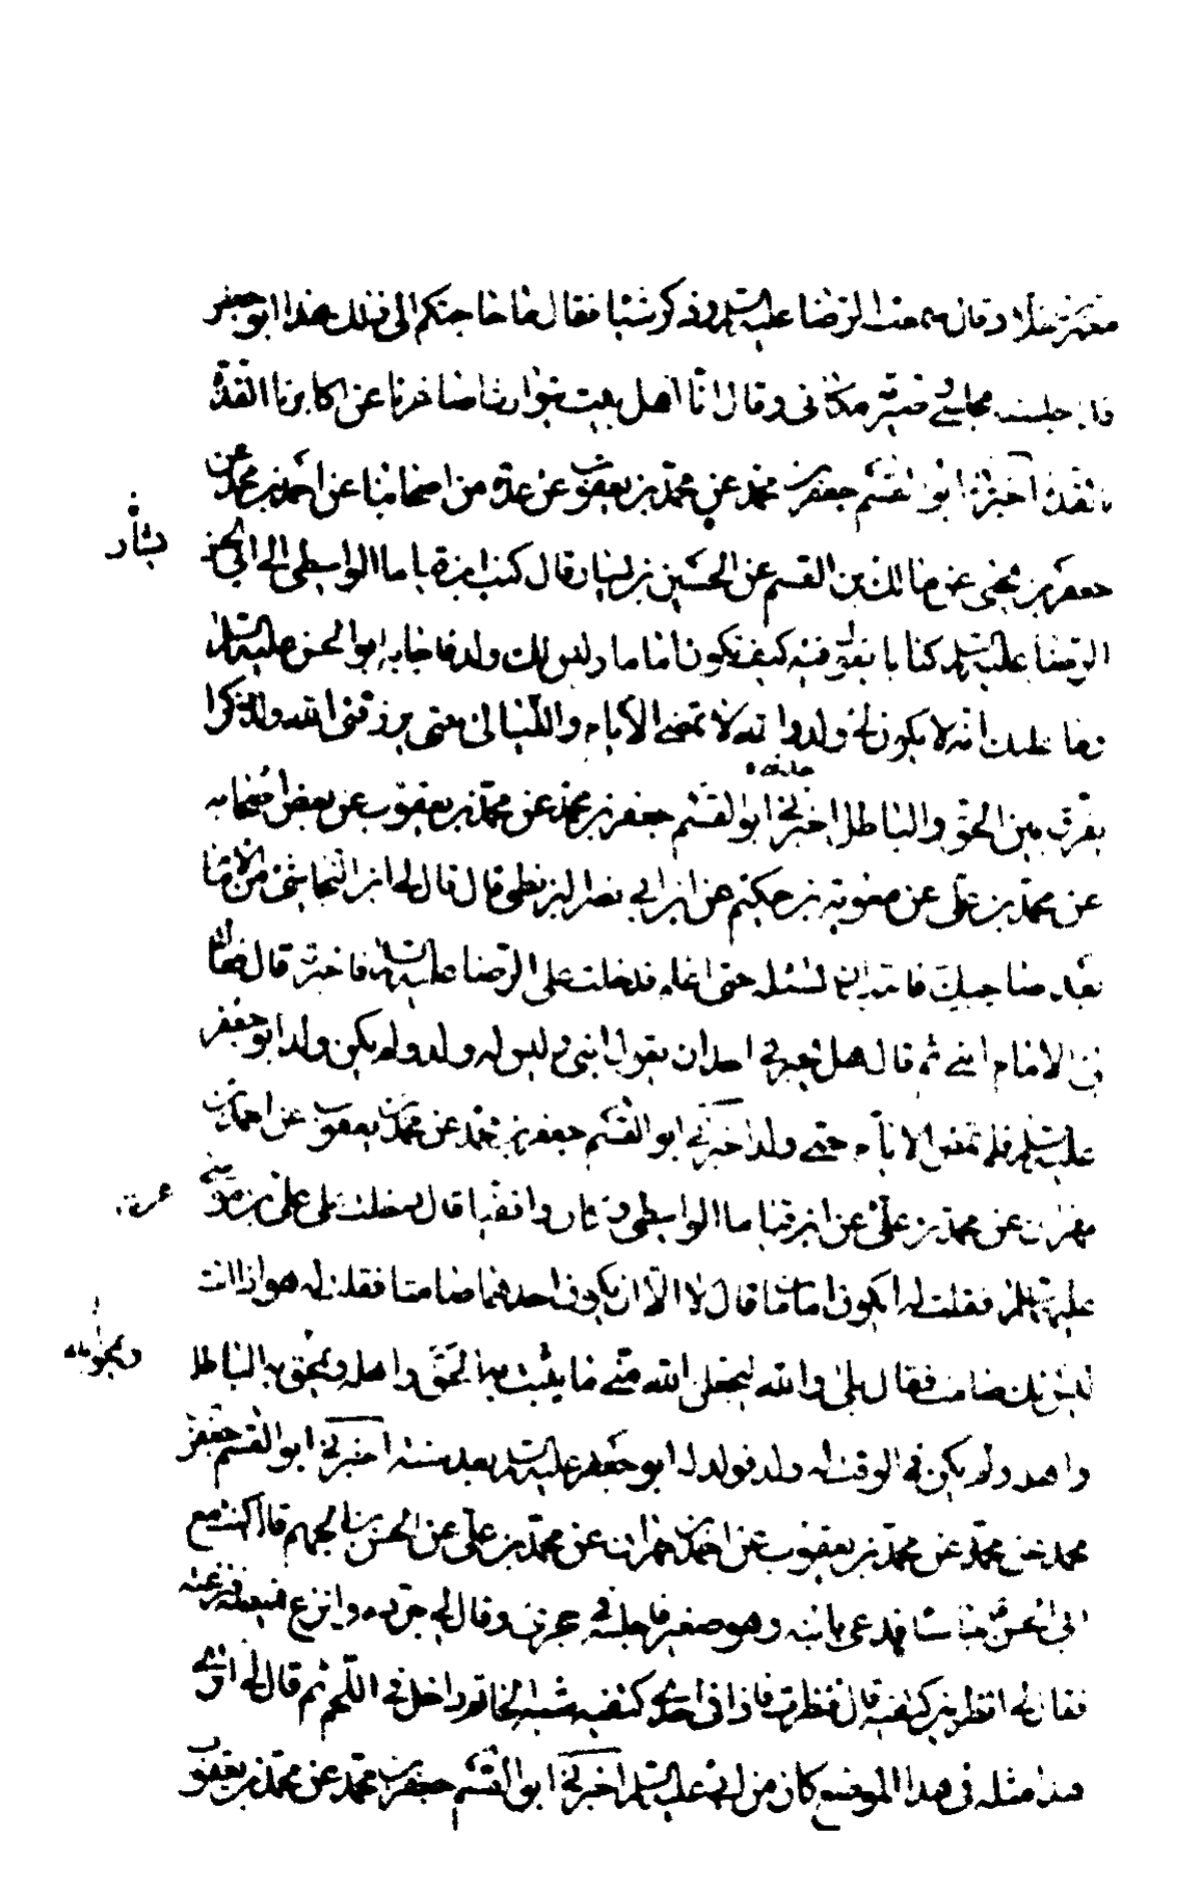 معمر بن خلاد قال سمعت الرضا عليه السلم وذكر شيئا فقال ما حاجتكم الى ذلك هذا ابو جعفر
قد اجلسته مجلسي وصيرته مكاني وقال انا اهل بيت يتوارث اصاغرنا عن اكابرنا القذة
بالقذة اخبرني ابو القسم جعفر بن محمد عن محمد بن يعقوب عن عدة من اصحابنا عن احمد بن محمد عن
جعفر بن يحيى عن مالك بن القسم عن الحسين بن يسار قال كتب ابن قياما الواسطي الى ابي الحسن
بشار
الرضا عليه السلم كتابا يقول فيه كيف تكون اماما وليس لك ولد فاجابه ابو الحسن عليه السلم
وما علمك انه لا يكون لي ولد والله لا تمضي الايام والليالي حتى يرزقني الله ولدا ذكرا
يفرق بين الحق والباطل اخبرني ابو القسم جعفر بن محمد عن محمد بن يعقوب عن بعض اصحابه
عن محمد بن علي عن معوية بن حكيم عن ابن ابي نصر البزنطي قال قال لي ابن النجاشي من الامام
بعد صاحبك فاحب ان تسئله حتى اعلم فدخلت على الرضا عليه السلم فاخبرته قال فقال
لي الامام ابني ثم قال هل يجترئ احد ان يقول ابني وليس له ولد ولم يكن ولد ابو جعفر
عليه السلم فلم تمض الايام حتى ولد اخبرني ابو القسم جعفر بن محمد عن محمد بن يعقوب عن احمد بن
مهران عن محمد بن علي عن ابن قياما الواسطي وكان واقفيا قال دخلت على علي بن موسى
عليه السلم فقلت له ايكون امامان قال لا الا ان يكون احدهما صامتا فقلت له هو ذا انت
ليس لك صامت فقال بلى والله ليجعلن الله مني ما يثبت به الحق واهله ويمحق به الباطل
واهله ولم يكن في الوقت له ولد فولد له ابو جعفر عليه السلم بعد سنة اخبرني ابو القسم جعفر بن
محمد عن محمد بن يعقوب عن احمد بن مهران عن محمد بن علي عن الحسن بن الجهم قال كنت مع
ابي الحسن جالسا فدعى بابنه وهو صغير فاجلسه في حجري وقال لي جرده وانزع قميصه فنزعته
فقال لي انظر بين كتفيه قال فنظرت فاذا في احدى كتفيه شبه الخاتم داخل في اللحم ثم قال لي اترى
هذا مثله في هذا الموضع كان من ابي عليه السلم اخبرني ابو القسم جعفر بن محمد عن محمد بن يعقوب